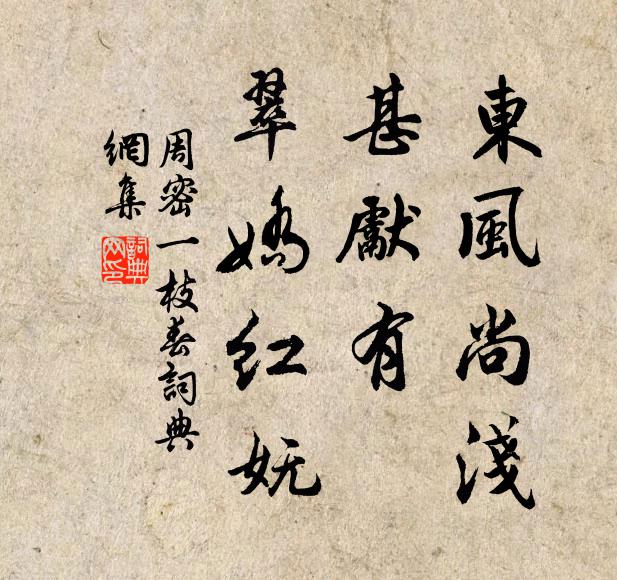 東風尚淺
甚獻有
翠嬌紅妩
周密一枝春詞典
網集
詞典
网印